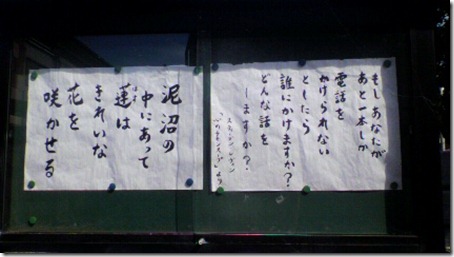 もしあなたが
あと一本しか
電話を
かけられない
としたら
誰にかけますか?
どんな話を
しますか?
泥沼の
中にあって
蓮は
きれいな
花を
咲かせる